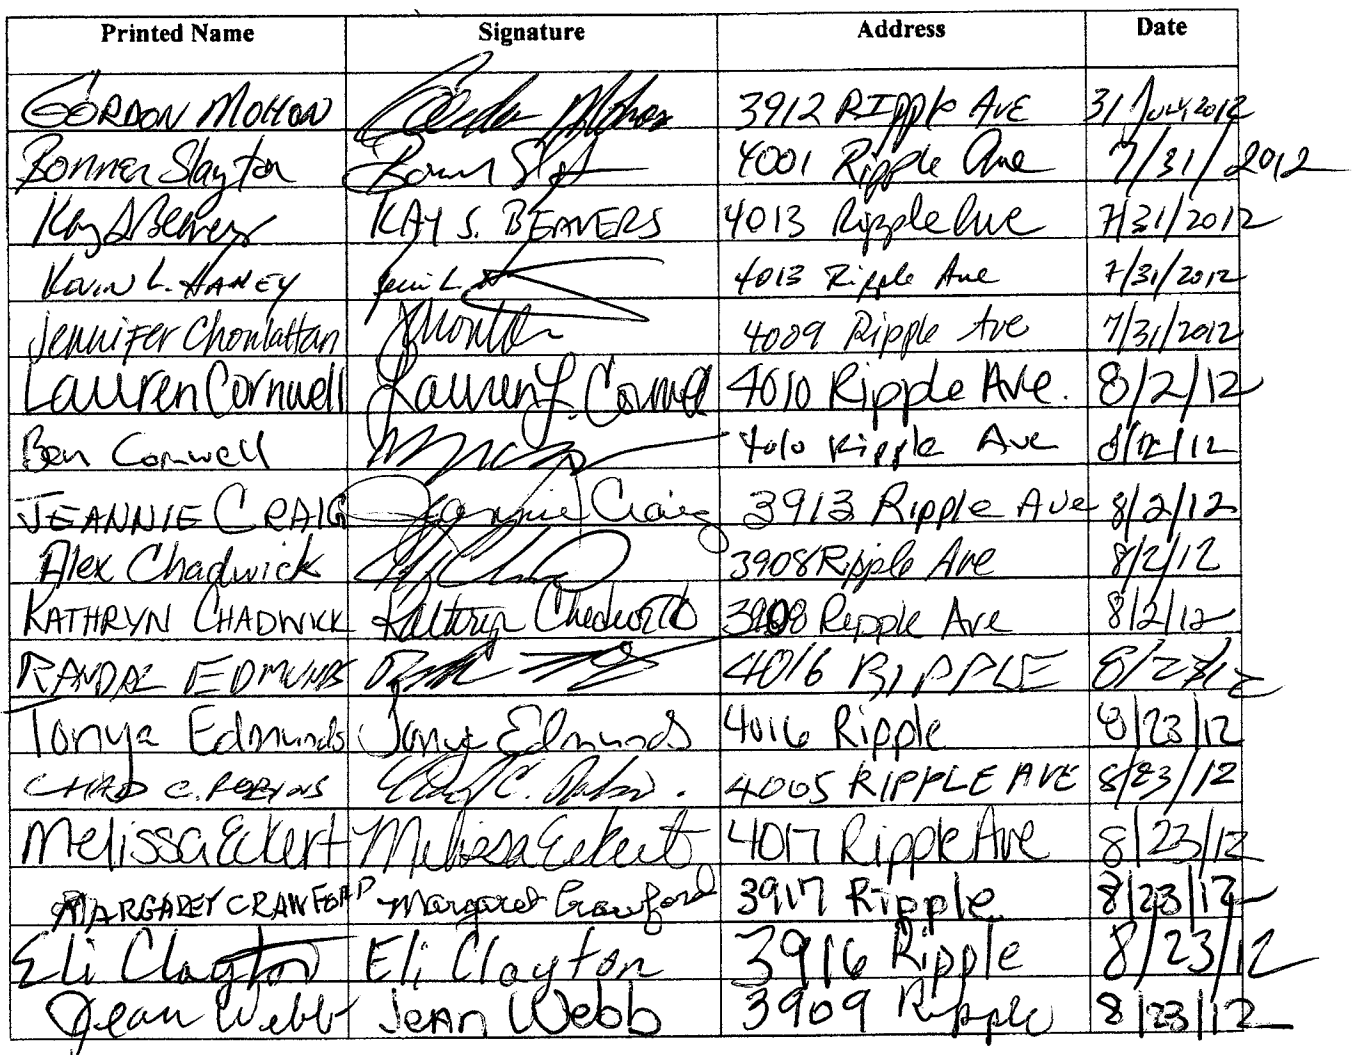 Printed Name Signature Address Date
GORDON MOHON Gordon Mohon 3912 RIpple Ave 31 July, 2012
Bonner Slayton 4001 Ripple Ave 7/31/2012
Kay S Beavers KAY S. BEAVERS 4013 Ripple Ave 7/31/2012
Kevin L. HANEY 4013 Ripple Ave 7/31/2012
Jennifer Chonlattan 4009 Ripple Ave 7/31/2012
Lauren Cornwell Lauren L. Cornwell 4010 Ripple Ave. 8/2/12
Ben Cornwell 4010 Ripple Ave 8/2/12
JEANNIE CRAIG Jeannie Craig 3913 Ripple Ave 8/2/12
Alex Chadwick 3908 Ripple Ave 8/2/12
KATHRYN CHADWICK Kathryn Chadwick 3908 Ripple Ave 8/2/12
RANDAL EDMUNDS 4016 RIPPLE 8/23/12
Tonya Edmunds Tonya Edmunds 4016 Ripple 8/23/12
CHAD C. ROBINS 4005 RIPPLE AVE 8/23/12
Melissa Eckert Melissa Eckert 4017 Ripple Ave 8/23/12
MARGARET CRAWFORD Margaret Crawford 3917 Ripple 8/23/12
Eli Clayton Eli Clayton 3916 Ripple 8/23/12
Jean Webb Jean Webb 3909 Ripple 8/23/12